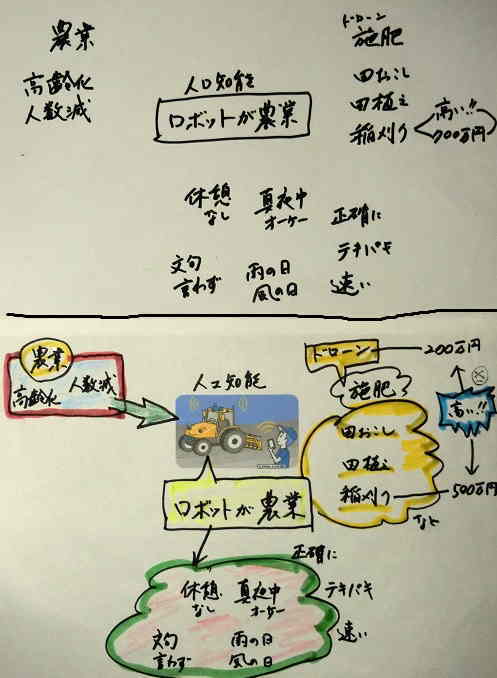 農業
高齢化
人数減
人口知能
ロボットが農業
ドローン
施肥
田おこし
田植え
稲刈り
高い!!
700万円
休憩
なし
真夜中
オーケー
文句
言わず
雨の日
風の日
正確に
テキパキ
速い
農業
高齢化
人数減
人工知能
ロボットが農業
ドローン
200万円
施肥
高い!!
田おこし
田植え
稲刈り
500万円
など
休憩
なし
真夜中
オーケー
文句
言わず
雨の日
風の日
正確に
テキパキ
速い